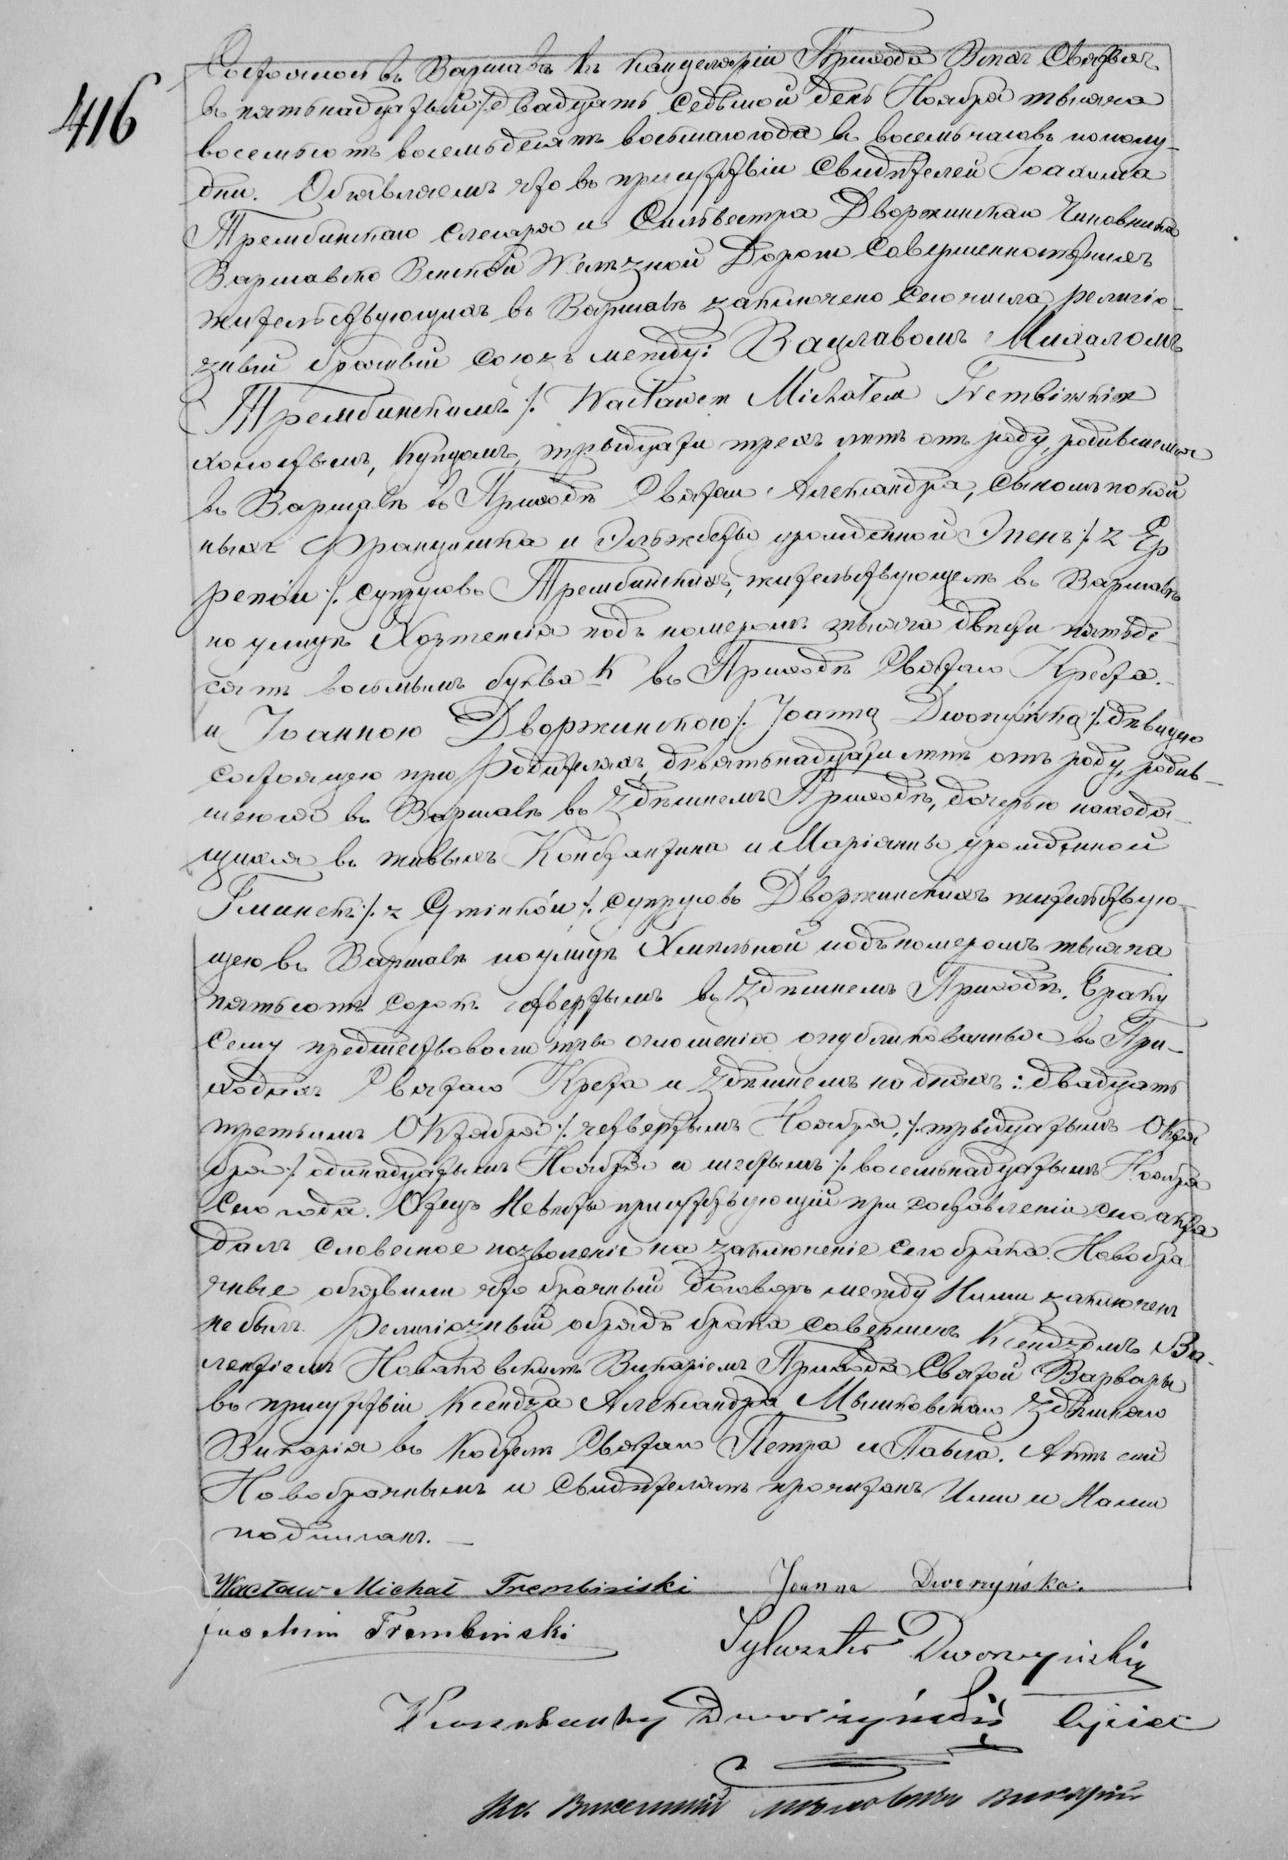 416
Состоялось въ Варшавѣ въ Канцеляріи Прихода Всѣхъ Святыхъ
въ пятьнадцатый /: двадцать седьмой день Ноября тысяча
восемьсотъ восемьдесятъ восьмаго года въ восемь часовъ пополу-
дни. Объявляемъ что въ присутствіи Свидѣтелей Іоахима
Трембинскаго слесаря и Сильвестра Дворжинскаго Чиновника
Варшавско Вѣнской Желѣзной Дороги Совершеннолѣтнихъ
жительствующихъ въ Варшавѣ заключено сего числа религіо-
зный брачный союзъ между: Вацлавомъ Михаломъ
Трембинскимъ /: Wacławem Michałem Trembińskim
холостымъ, Купцомъ, тридцати трехъ лѣтъ отъ роду, родившемся
въ Варшавѣ въ Приходѣ Святаго Александра, сыномъ покой
ныхъ Францишка и Эльжбеты урожденной /: z
/: супруговъ Трембинскихъ, жительствующемъ въ Варшавѣ
по улицѣ Хортенсія подъ номеромъ тысяча двѣсти пятьде-
сятъ восьмымъ буква К въ Приходѣ Святаго Креста.
и Іоанною Дворжинскою /: Joanną Dworzyńską /: дѣвицею
состоящею при Родителяхъ, девятьнадцати лѣтъ отъ роду, родив-
шеюся въ Варшавѣ въ здѣшнемъ Приходѣ, дочерью находя-
щихся въ живыхъ Константина и Маріанны урожденной
/: z Gminków /: супруговъ Дворжинскихъ жительствую-
щею въ Варшавѣ по улицѣ Хмѣльной подъ номеромъ тысяча
пятьсотъ сорокъ четвертымъ въ здѣшнемъ Приходѣ. Браку
сему предшествовали три оглашенія опубликованные въ При-
ходахъ Святаго Креста и здѣшнемъ по дняхъ: двадцать
третьимъ Октября /: четвертымъ Ноября, /: тридцатымъ Октя
бря /: одинадцатымъ Ноября и шестымъ /: восемьнадцатымъ Ноября
сего года. Отецъ Невѣсты присутствующій при составленіи сего акта
далъ словесное позволеніе на заключеніе сего брака. Новобра
чные объявили что брачный договоръ между Ними заключенъ
не былъ. Религіозный обрядъ брака совершенъ Ксендзомъ Ва-
лентіемъ Новаковскимъ Викаріемъ Прихода Святой Варвары
въ присутствіи Ксендза Александра Мышковскаго здѣшняго
Викарія въ Костелѣ Святаго Петра и Павла. Актъ сей
Новобрачнымъ и Свидѣтелямъ прочитанъ Ими и Нами
подписанъ. —
Wacław Michał Trembiński Joanna Dworzyńska.
Joachim Trembiński
Sylwester Dworzyński
Konstanty Dworzyński Ojciec
Кс. Викарій